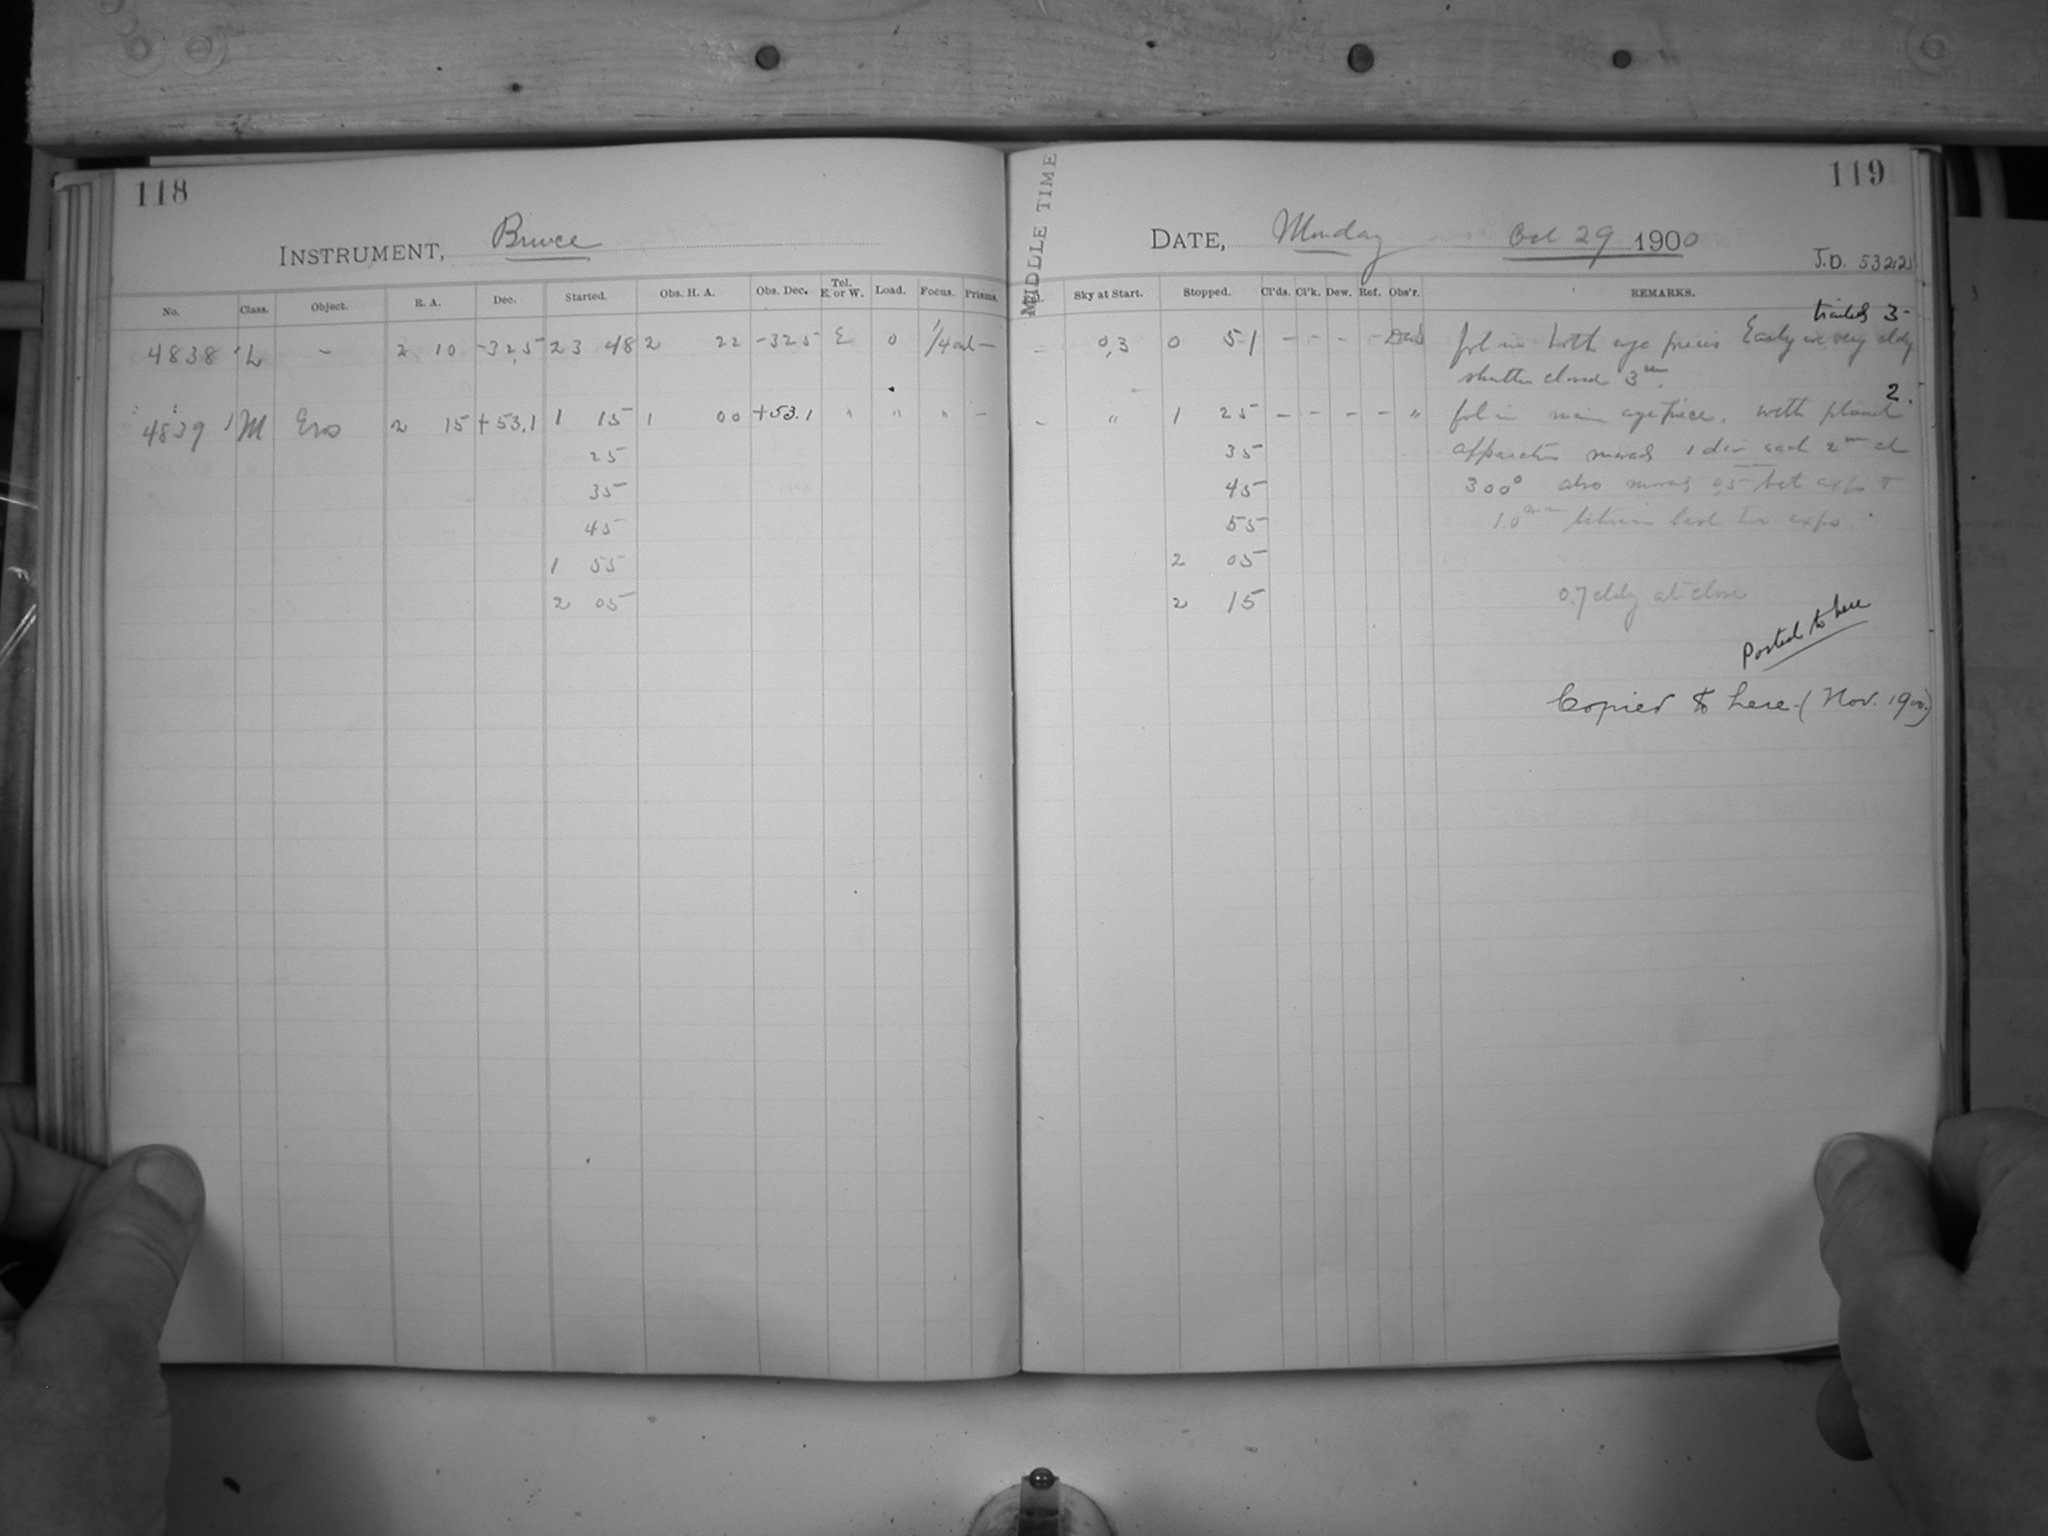 118
INSTRUMENT, Bruce
No. Class. Object. R. A. Dec. Started. Obs. H. A. Obs. Dec. Tel. E. or W. Load. Focus. Prisms.
4838 L - 2 10 -32.5 23 48 2 22 -32.5 E 0 1/4 —
4839 M Eros 2 15 +53.1 1 15 1 00 +53.1 " " " —
25
35
45
1 55
2 05
119
MIDDLE TIME
DATE, Monday Oct 29 1900
J.D. 5322
Sky at Start. Stopped. Cl'ds. Cl'k. Dew. Ref. Obs'r. REMARKS.
trailed 3-
- 0.3 0 51 - - - - fol in both eye pieces Early ic. very cldy
shutter closed 3m.
2.
- " 1 25 - - - - " fol in main eye piece. with planet
35 apparatus moved 1 div each 2m at
45 300° also moved 0.5 bet exps &
55 1.0mm between last two exps.
2 05
2 15 0.7 cldy at close
Posted to here
Copied to here (Nov. 1900)